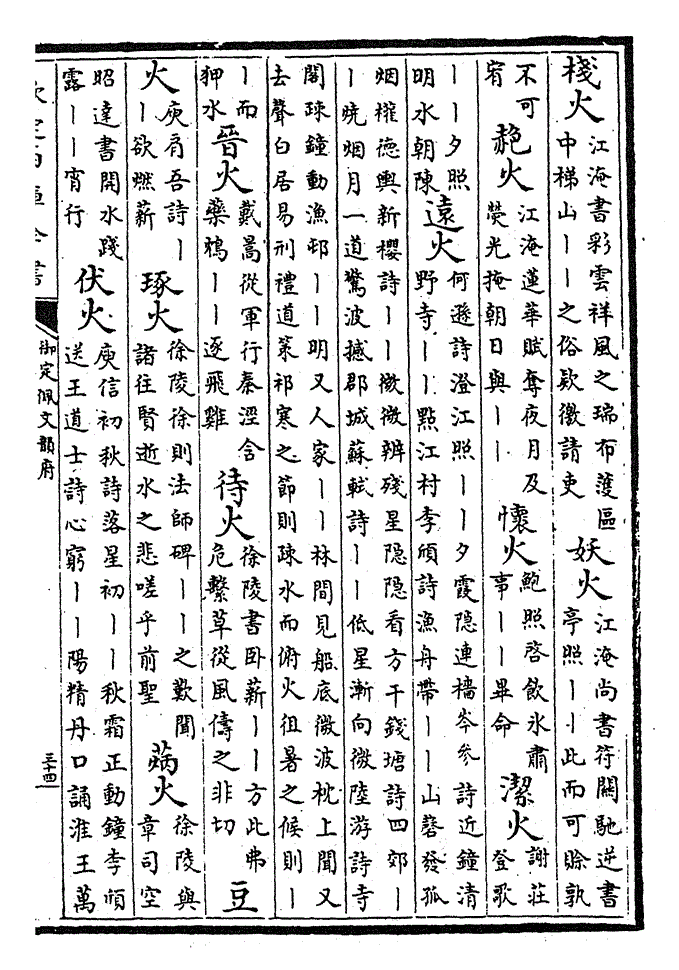 棧火 江淹書彩雲祥風之瑞布護區中梯山丨丨之俗款徼請吏 妖火 江淹尚書符闕馳逆書亭照丨丨此而可賒孰
不可宥 赩火 江淹蓮華賦奪夜月及熒光掩朝日與丨丨 懷火 鮑照啓飲氷肅事丨丨畢命 潔火 謝莊登歌
丨丨夕照明水朝陳 遠火 何遜詩澄江照丨丨夕霞隱連檣岑參詩近鐘清野寺丨丨點江村李頎詩漁舟帶丨丨山磬發孤
烟權德輿新櫻詩丨丨微微辨殘星隠隠看方干錢塘詩四郊丨丨燒烟月一道驚波撼郡城蘇軾詩丨丨低星漸向微陸游詩寺
閣疎鐘動漁邨丨丨明又人家丨丨林間見船底微波枕上聞又去聲白居易刑禮道策祁寒之節則疎水而俯火徂暑之候則丨
丨而狎水 晉火 戴暠從軍行秦涇含藥鴆丨丨逐飛雞 待火 徐陵書臥薪丨丨方此弗危繫草從風儔之非切 豆
火 庾肩吾詩丨丨欲燃薪 琢火 徐陵徐則法師碑丨丨之歎聞諸往賢逝水之悲嗟乎前聖 火 徐陵與章司空
昭達書開水踐露丨丨宵行 伏火 庾信初秋詩落星初丨丨秋霜正動鐘李頎送王道士詩心窮丨丨陽精丹口誦淮王萬
欽定四庫全書
御定佩文韻府
三十四